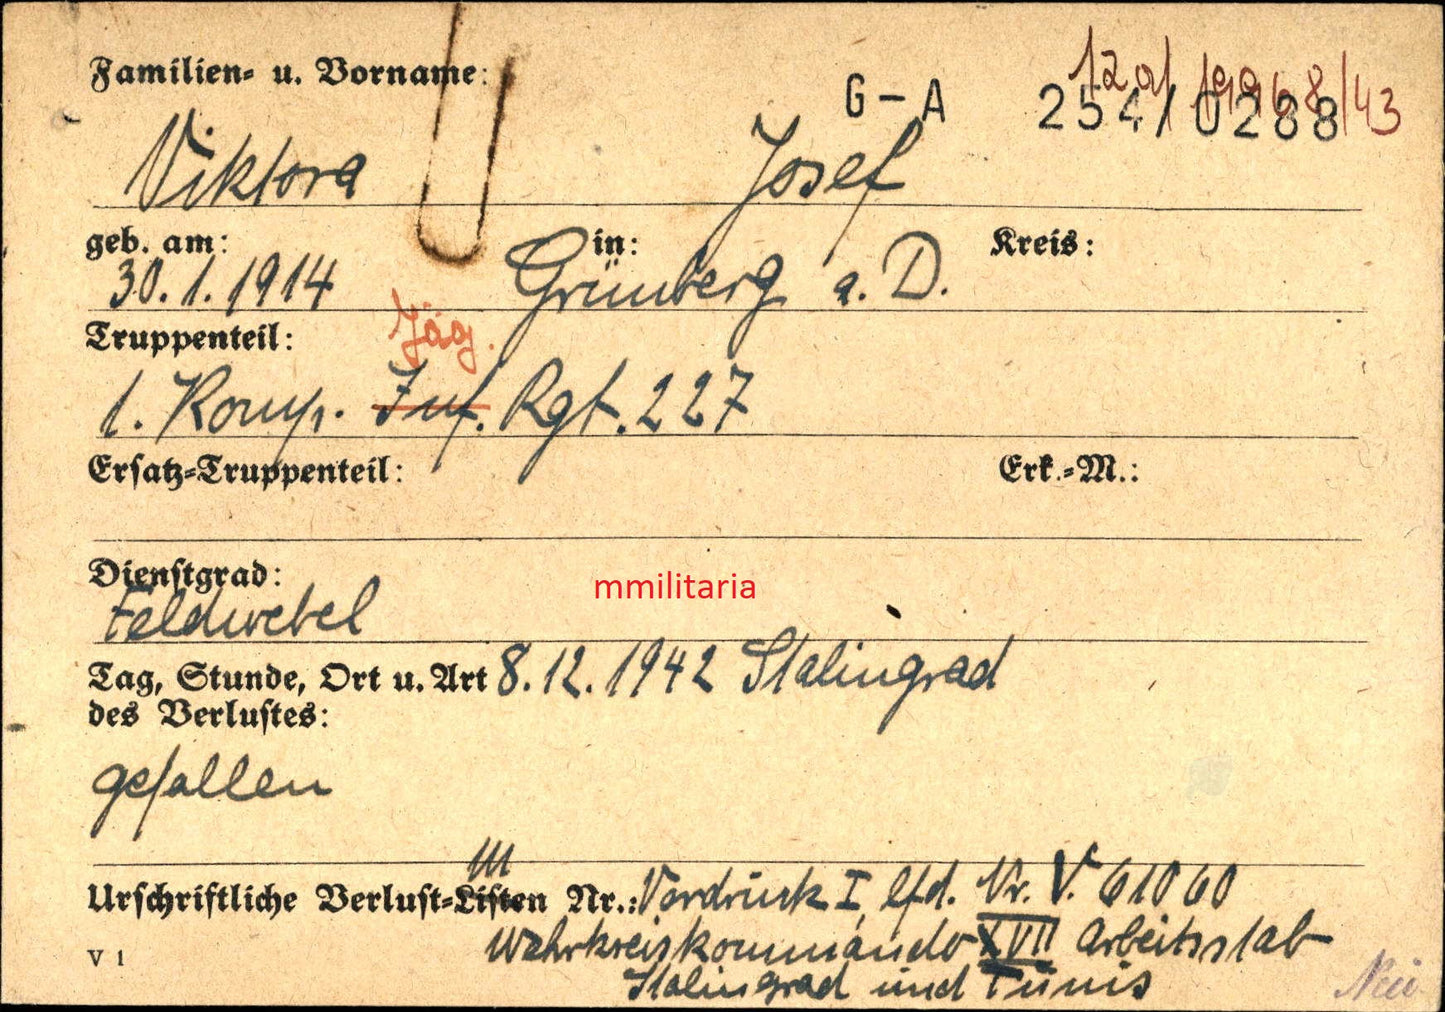 Familien- u. Vorname:
G - A 254/0288
Viktora Josef
geb. am: in: Kreis:
30. 1. 1914 Grünberg a. D.
Truppenteil: Jäg.
1. Komp. Inf. Rgt. 227
Ersatz-Truppenteil: Erk.-M.:
Dienstgrad:
Feldwebel
mmilitaria
Tag, Stunde, Ort u. Art 8. 12. 1942 Stalingrad
des Verlustes:
gefallen
Urschriftliche Verlust-Listen Nr.: Vordruck I, lfd. Nr. V. 61060
Wehrkreiskommando XVII Arbeitsstab
V 1
Stalingrad und Tunis